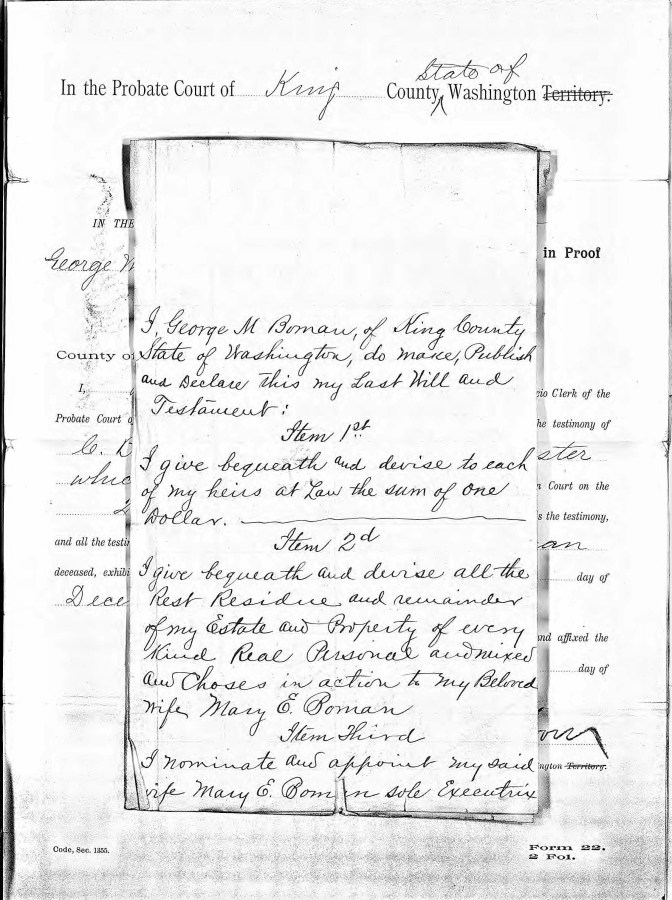 State of
In the Probate Court of King County, Washington Territory.
IN THE
in Proof
George M
I, George M Boman, of King County
State of Washington, do make, Publish
and Declare this my Last Will and
Testament:
County o
I,
cio Clerk of the
Probate Court o
he testimony of
Item 1st
C. B
ster
I give bequeath and devise to each
whic
n Court on the
of my heirs at Law the sum of one
2
s the testimony,
Dollar.
Item 2d
and all the testi
an
deceased, exhibi
day of
I give bequeath and devise all the
Dece
Rest Residue and remainder
of my Estate and Property of every
and affixed the
Kind Real Personal and mixed
day of
and Choses in action to my Beloved
wife Mary E. Boman
Item Third
I nominate and appoint my said
ington Territory.
wife Mary E. Boman sole Executrix
Code, Sec. 1355.
Form 22.
2 Fol.